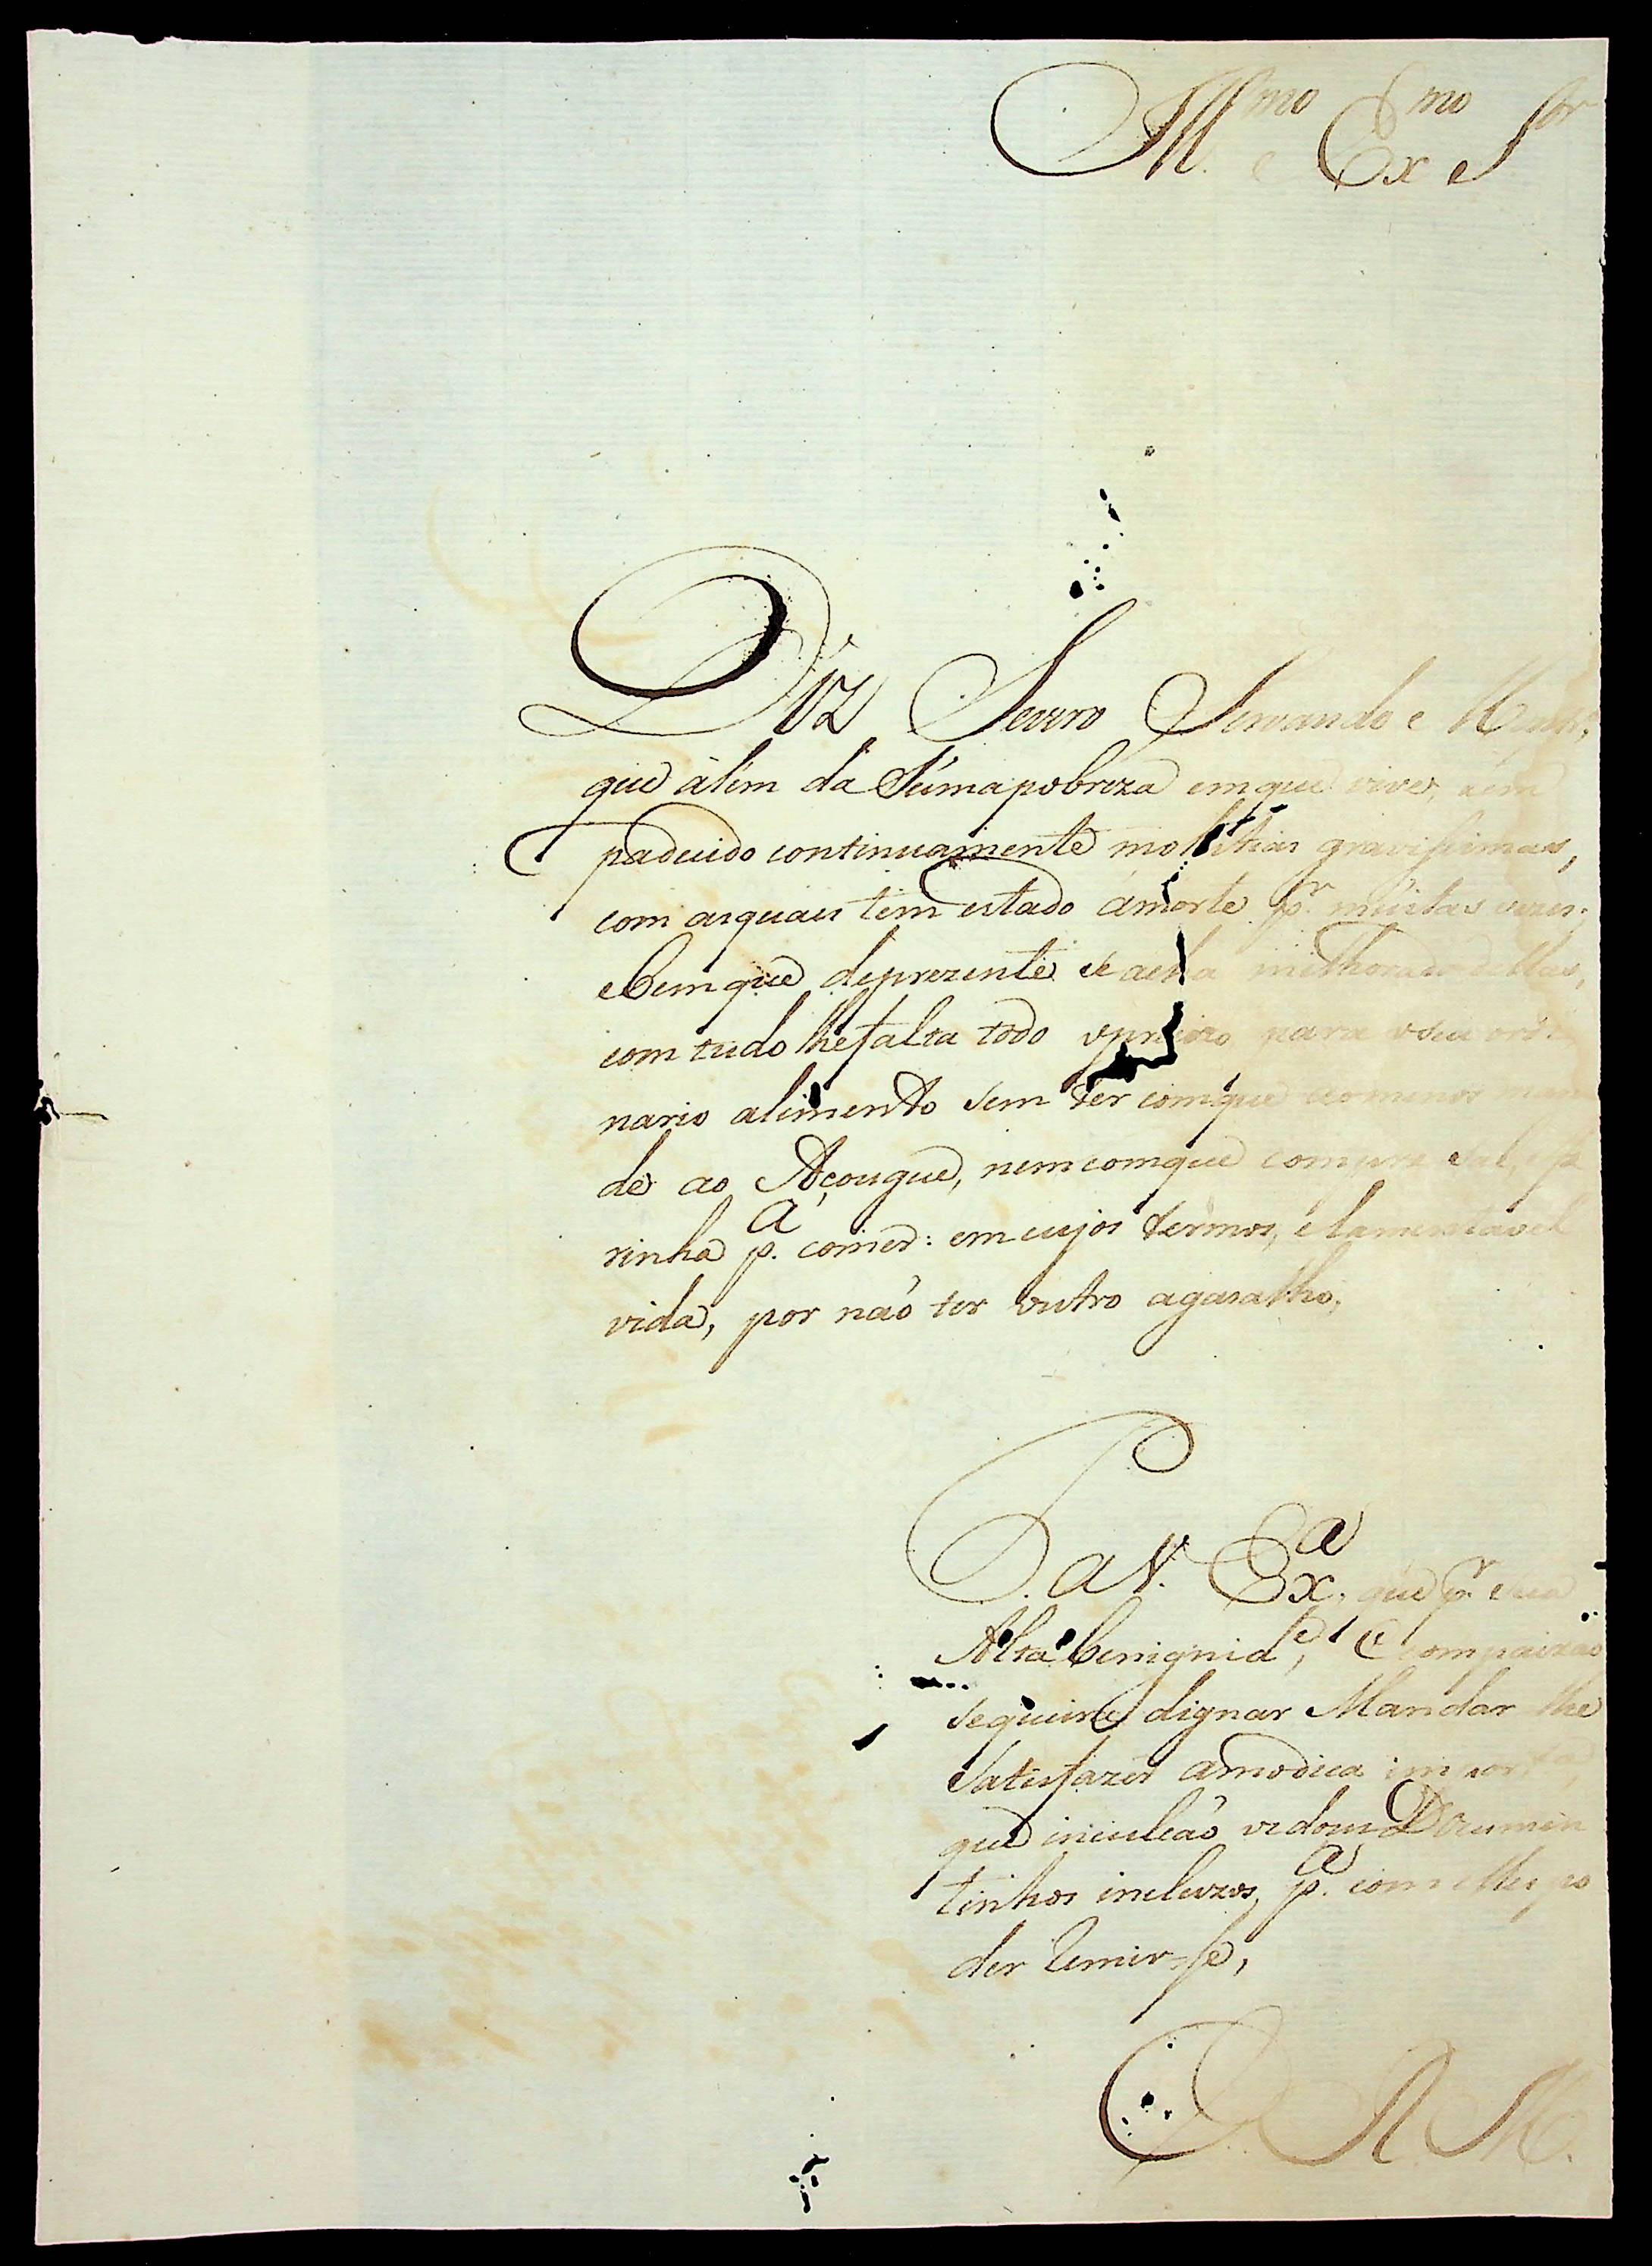 Ill.mo e Ex.mo S.or
Diz Severo Servando e
que além da súma pobreza em que vive, tem
padecido continuamente molestias gravissimas,
com as quais tem estado á morte p.r muitas vezes;
e bem que de prezente se acha milhorado dellas,
com tudo lhe falta todo o preciso para o seu ordi
nario alimento sem ter com que ao menos man
de ao Açougue, nem com que compre sal, e fa
rinha p.a comer: em cujos termos, é lamentavel
vida, por não ter outro agasalho,
P. a V. Ex.a que p.r sua
Alta benignid.e, e compaixão
se queira dignar Mandar lhe
satisfazer a modica
que inculcaõ os dous Documen
tinhos incluzos, p.a com elles po
der remir-se,
E R M.